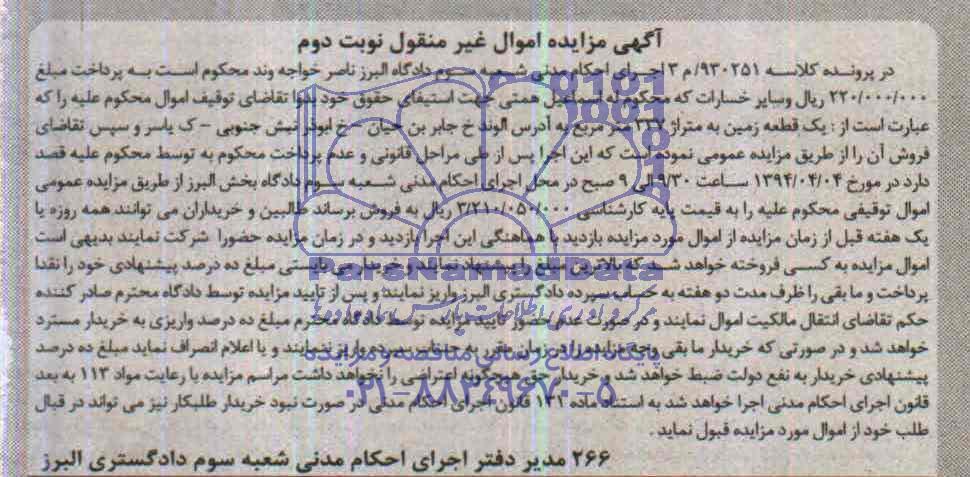 آگهی مزایده اموال غیر منقول نوبت دوم
در پرونده کلاسه ۹۳۰۲۵۱/م ۳ اجرای احکام مدنی شعبه سوم دادگاه البرز ناصر خواجه وند محکوم است به پرداخت مبلغ
۲۲۰/۰۰۰/۰۰۰ ریال وسایر خسارات که محکوم له اسماعیل همتی جهت استیفای حقوق خود بدوا تقاضای توقیف اموال محکوم علیه را که
عبارت است از : یک قطعه زمین به متراژ متر مربع به آدرس الوند خ جابر بن حیان - خ ابوذر نبش جنوبی - ک یاسر و سپس تقاضای
فروش آن را از طریق مزایده عمومی نموده است که این اجرا پس از طی مراحل قانونی و عدم پرداخت محکوم به توسط محکوم علیه قصد
دارد در مورخ ۱۳۹۴/۰۴/۰۴ ساعت ۹/۳۰ الی ۹ صبح در محل اجرای احکام مدنی شعبه سوم دادگاه بخش البرز از طریق مزایده عمومی
اموال توقیفی محکوم علیه را به قیمت پایه کارشناسی ۳/۲۱۰/۰۵۰/۰۰۰ ریال به فروش برساند طالبین و خریداران می توانند همه روزه یا
یک هفته قبل از زمان مزایده از اموال مورد مزایده بازدید با هماهنگی این اجرا بازدید و در زمان مزایده حضورا شرکت نمایند بدیهی است
اموال مزایده به کسی فروخته خواهد شد که بالاترین مبلغ را پیشنهاد نماید و خریدار می بایستی مبلغ ده درصد پیشنهادی خود را نقدا
پرداخت و ما بقی را ظرف مدت دو هفته به حساب سپرده دادگستری البرز واریز نمایند و پس از تایید مزایده توسط دادگاه محترم صادر کننده
حکم تقاضای انتقال مالکیت اموال نمایند و در صورت عدم حضور تایید مزایده توسط دادگاه محترم مبلغ ده درصد واریزی به خریدار مسترد
خواهد شد و در صورتی که خریدار ما بقی وجه مزایده را در زمان مقرر به حساب سپرده واریز ننمایند و یا اعلام انصراف نماید مبلغ ده درصد
پیشنهادی خریدار به نفع دولت ضبط خواهد شد و خریدار حق هیچگونه اعتراضی را نخواهد داشت مراسم مزایده با رعایت مواد ۱۱۳ به بعد
قانون اجرای احکام مدنی اجرا خواهد شد به استناد ماده ۱۳۱ قانون اجرای احکام مدنی در صورت نبود خریدار طلبکار نیز می تواند در قبال
طلب خود از اموال مورد مزایده قبول نماید .
۲۶۶ مدیر دفتر اجرای احکام مدنی شعبه سوم دادگستری البرز
ParsNamadData
پایگاه اطلاع رسانی مناقصه و مزایده
۰۲۱-۸۸۳۴۹۶۷۰-۵